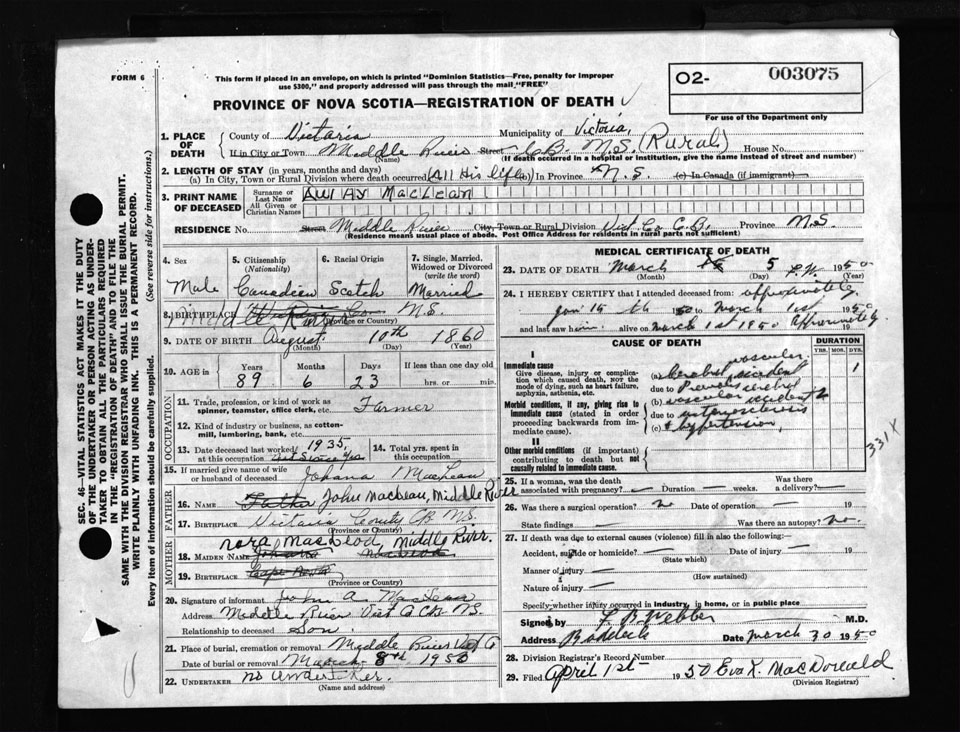 FORM 6
This form if placed in an envelope, on which is printed "Dominion Statistics—Free, penalty for improper
use $300," and properly addressed will pass through the mail "FREE"
O2- 003075
For use of the Department only
PROVINCE OF NOVA SCOTIA—REGISTRATION OF DEATH
1. PLACE OF DEATH
County of Victoria Municipality of Victoria,
If in City or Town Middle River Street C.B. N.S. (Rural) House No.
(Name) (If death occurred in a hospital or institution, give the name instead of street and number)
2. LENGTH OF STAY (in years, months and days)
(a) In City, Town or Rural Division where death occurred (All His life) In Province N.S. (c) In Canada (if immigrant)
3. PRINT NAME OF DECEASED
Surname or Last Name MacLean
All Given or Christian Names
RESIDENCE No. Street Middle River City, Town or Rural Division Vict. Co C.B. Province N.S.
(Residence means usual place of abode. Post Office Address for residents in rural parts not sufficient)
4. Sex Male
5. Citizenship (Nationality) Canadian
6. Racial Origin Scotch
7. Single, Married, Widowed or Divorced (write the word) Married
8. BIRTHPLACE Middle River N.S.
(Province or Country)
9. DATE OF BIRTH August 10th 1860
(Month) (Day) (Year)
10. AGE in Years 89 Months 6 Days 23 If less than one day old hrs. or min.
OCCUPATION
11. Trade, profession, or kind of work as
spinner, teamster, office clerk, etc. Farmer
12. Kind of industry or business, as cotton-
mill, lumbering, bank, etc.
13. Date deceased last worked at this occupation 1935,
14. Total yrs. spent in this occupation
15. If married give name of wife
or husband of deceased Johana MacLean
FATHER
16. NAME John MacLean, Middle River
17. BIRTHPLACE Victoria County CB N.S.
(Province or Country)
MOTHER
18. MAIDEN NAME MacLeod Middle River.
19. BIRTHPLACE
(Province or Country)
20. Signature of informant John A MacLean
Address Middle River Vict. CB N.S.
Relationship to deceased Son.
21. Place of burial, cremation or removal Middle River
Date of burial or removal March 8th 1950
22. UNDERTAKER No Undertaker.
(Name and address)
MEDICAL CERTIFICATE OF DEATH
23. DATE OF DEATH March 5 1950
(Month) (Day) (Year)
24. I HEREBY CERTIFY that I attended deceased from: approximately
Jan 15 th 1950 to March 1st 1950
and last saw him alive on March 1st 1950 Approximately 19
CAUSE OF DEATH
DURATION
YRS. MOS. DYS.
I
Immediate cause
Give disease, injury or complication which caused death, not the mode of dying, such as heart failure, asphyxia, asthenia, etc.
(a) Cerebral vascular accident 1
due to Previous cerebral
(b) vascular accident
due to arteriosclerosis
(c) & hypertension,
331X
Morbid conditions, if any, giving rise to immediate cause (stated in order proceeding backwards from immediate cause).
II
Other morbid conditions (if important) contributing to death but not causally related to immediate cause.
25. If a woman, was the death
associated with pregnancy? Duration weeks. Was there a delivery?
26. Was there a surgical operation? no Date of operation 19
State findings Was there an autopsy? no.
27. If death was due to external causes (violence) fill in also the following:
Accident, suicide or homicide? Date of injury 19
(State which)
Manner of injury
(How sustained)
Nature of injury
Specify whether injury occurred in industry, in home, or in public place
Signed by F B Webber M.D.
Address Baddeck Date March 30 1950
28. Division Registrar's Record Number
29. Filed April 1st 1950 Eva K. MacDonald
(Division Registrar)
SEC. 46—VITAL STATISTICS ACT MAKES IT THE DUTY
OF THE UNDERTAKER OR PERSON ACTING AS UNDER-
TAKER TO OBTAIN ALL THE PARTICULARS REQUIRED
IN THE "REGISTRATION OF DEATH" AND TO FILE THE
SAME WITH THE DIVISION REGISTRAR WHO SHALL ISSUE THE BURIAL PERMIT.
WRITE PLAINLY WITH UNFADING INK. THIS IS A PERMANENT RECORD.
Every item of information should be carefully supplied. (See reverse side for instructions.)